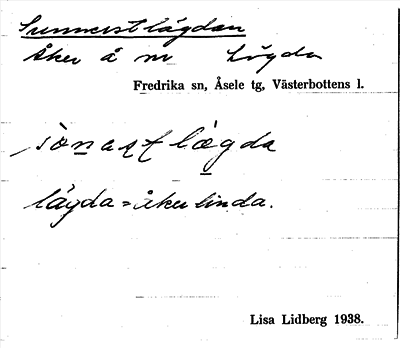 Sunnerstlägdan
Åker å m Lögda
Fredrika sn, Åsele tg, Västerbottens l.
lägda = åkerlinda.
Lisa Lidberg 1938.